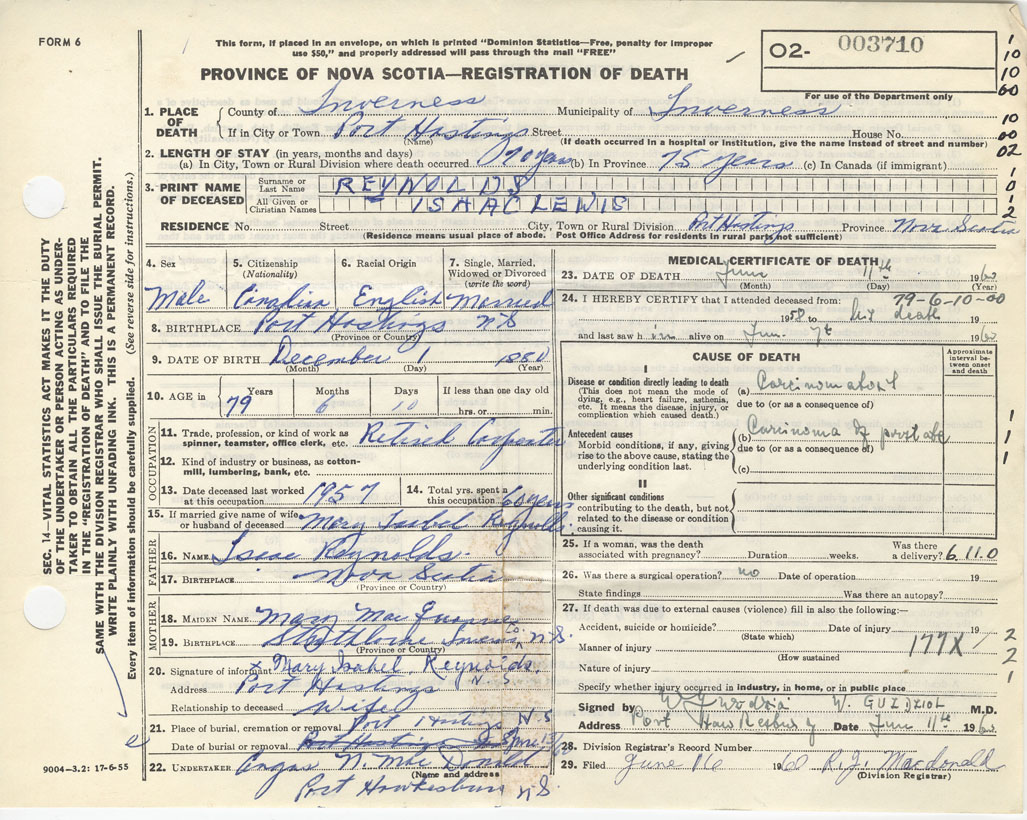 FORM 6
This form, if placed in an envelope, on which is printed "Dominion Statistics—Free, penalty for improper
use $50," and properly addressed will pass through the mail "FREE"
O2- 003710
PROVINCE OF NOVA SCOTIA—REGISTRATION OF DEATH
For use of the Department only
1
10
10
60
1. PLACE OF DEATH
County of Inverness Municipality of Inverness
10
If in City or Town Port Hastings Street House No.
00
(Name) (If death occurred in a hospital or institution, give the name instead of street and number)
2. LENGTH OF STAY (in years, months and days)
02
(a) In City, Town or Rural Division where death occurred 70 years (b) In Province 75 years (c) In Canada (if immigrant)
3. PRINT NAME OF DECEASED
Surname or Last Name REYNOLDS
All Given or Christian Names ISAAC LEWIS
1
0
1
2
RESIDENCE No. Street City, Town or Rural Division Port Hastings Province Nova Scotia
(Residence means usual place of abode. Post Office Address for residents in rural parts not sufficient)
SEC. 14—VITAL STATISTICS ACT MAKES IT THE DUTY
OF THE UNDERTAKER OR PERSON ACTING AS UNDER-
TAKER TO OBTAIN ALL THE PARTICULARS REQUIRED
IN THE "REGISTRATION OF DEATH" AND FILE THE
SAME WITH THE DIVISION REGISTRAR WHO SHALL ISSUE THE BURIAL PERMIT.
WRITE PLAINLY WITH UNFADING INK. THIS IS A PERMANENT RECORD.
Every item of information should be carefully supplied. (See reverse side for instructions.)
4. Sex 5. Citizenship 6. Racial Origin 7. Single, Married,
(Nationality) Widowed or Divorced
(write the word)
Male Canadian English Married
8. BIRTHPLACE Port Hastings NS
(Province or Country)
9. DATE OF BIRTH December 1 1880
(Month) (Day) (Year)
10. AGE in Years Months Days If less than one day old
79 6 10 hrs. or min.
OCCUPATION
11. Trade, profession, or kind of work as
spinner, teamster, office clerk, etc. Retired Carpenter
12. Kind of industry or business, as cotton-
mill, lumbering, bank, etc.
13. Date deceased last worked
at this occupation 1957
14. Total yrs. spent in
this occupation 60 years
15. If married give name of wife
or husband of deceased Mary Isabel Reynolds
FATHER
16. NAME Isaac Reynolds
17. BIRTHPLACE Nova Scotia
(Province or Country)
MOTHER
18. MAIDEN NAME Mary
19. BIRTHPLACE Co N.S.
(Province or Country)
20. Signature of informant x Mary Isabel Reynolds.
Address Port Hastings N.S
Relationship to deceased Wife
21. Place of burial, cremation or removal Port Hastings N.S
Date of burial or removal Port Hastings
22. UNDERTAKER Angus N. Mac Donald
(Name and address)
Port Hawkesbury N.S.
9004—3.2: 17-6-55
MEDICAL CERTIFICATE OF DEATH
23. DATE OF DEATH June 11th 1960
(Month) (Day) (Year)
24. I HEREBY CERTIFY that I attended deceased from: 79-6-10-00
1958 to his death 19
and last saw him alive on June 7th 1960
CAUSE OF DEATH
Approximate interval between onset and death
I
Disease or condition directly leading to death
(This does not mean the mode of
dying, e.g., heart failure, asthenia,
etc. It means the disease, injury, or
complication which caused death.)
(a) Carcinomatosis
due to (or as a consequence of)
Antecedent causes
Morbid conditions, if any, giving
rise to the above cause, stating the
underlying condition last.
(b) Carcinoma of prostate
due to (or as a consequence of)
(c)
1
1
1
II
Other significant conditions
contributing to the death, but not
related to the disease or condition
causing it.
25. If a woman, was the death
associated with pregnancy? Duration weeks. Was there
a delivery? 6.11.0
26. Was there a surgical operation? no Date of operation 19
State findings Was there an autopsy?
27. If death was due to external causes (violence) fill in also the following:—
Accident, suicide or homicide? Date of injury 19
(State which)
Manner of injury 177X
(How sustained)
Nature of injury
2
2
1
Specify whether injury occurred in industry, in home, or in public place
Signed by W. GUZDZIOL M.D.
Address Port Hawkesbury Date June 11th 1960
28. Division Registrar's Record Number
29. Filed June 16 1960 R.J. Macdonald
(Division Registrar)